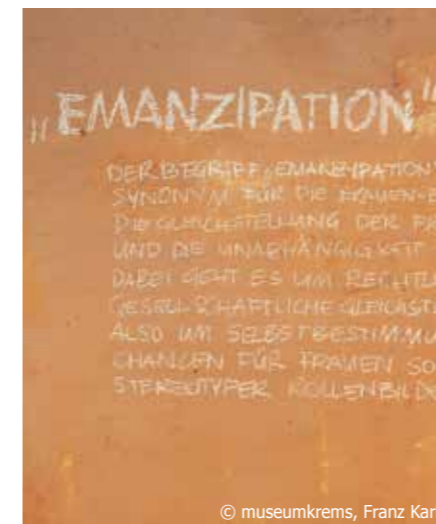 „EMANZIPATION“
DER BEGRIFF „EMANZIPATION
SYNONYM FÜR DIE FRAUEN-B
DIE GLEICHSTELLUNG DER FR
UND DIE UNABHÄNGIGKEIT
DABEI GEHT ES UM RECHTL
GESELLSCHAFTLICHE GLEICHSTE
ALSO UM SELBSTBESTIMMU
CHANCEN FÜR FRAUEN SO
STEREOTYPER ROLLENBILDE
© museumkrems, Franz Kar